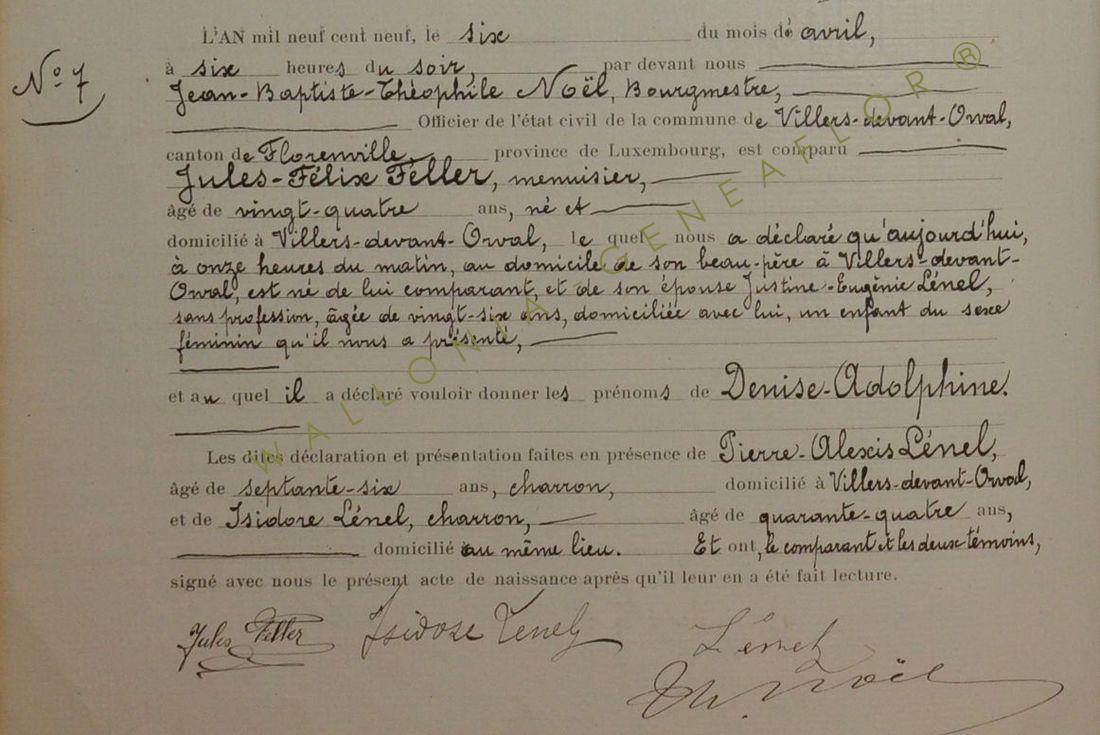 L'AN mil neuf cent neuf, le six du mois de avril,
No 7
à six heures du soir, par devant nous
Jean-Baptiste-Théophile Noël, Bourgmestre,
Officier de l'état civil de la commune de Villers-devant-Orval,
canton de Florenville, province de Luxembourg, est comparu
Jules-Félix Feller, menuisier,
âgé de vingt-quatre ans, né et
domicilié à Villers-devant-Orval, le quel nous a déclaré qu'aujourd'hui,
à onze heures du matin, au domicile de son beau-père à Villers-devant-
Orval, est né de lui comparant, et de son épouse Justine-Eugénie Lénel,
sans profession, âgée de vingt-six ans, domiciliée avec lui, un enfant du sexe
féminin qu'il nous a présenté,
et au quel il a déclaré vouloir donner les prénoms de Denise-Adolphine.
Les dites déclaration et présentation faites en présence de Pierre-Alexis Lénel,
âgé de septante-six ans, charron, domicilié à Villers-devant-Orval,
et de Isidore Lénel, charron, âgé de quarante-quatre ans,
domicilié au même lieu. Et ont, le comparant et les deux témoins,
signé avec nous le présent acte de naissance après qu'il leur en a été fait lecture.
Jules Feller Isidore Lenel Lénel
Th. Noël
WALLONIA GENEAFLOR ®